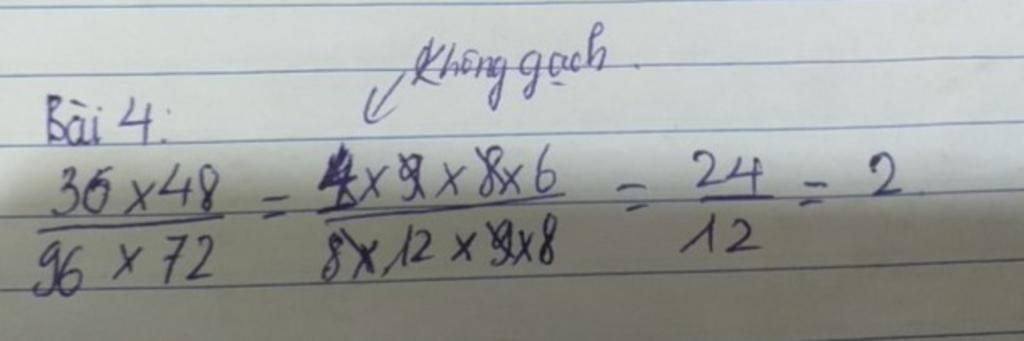 Không gạch.
Bài 4:
36 x 48 / 96 x 72 = 4 x 9 x 8 x 6 / 8 x 12 x 9 x 8 = 24 / 12 = 2